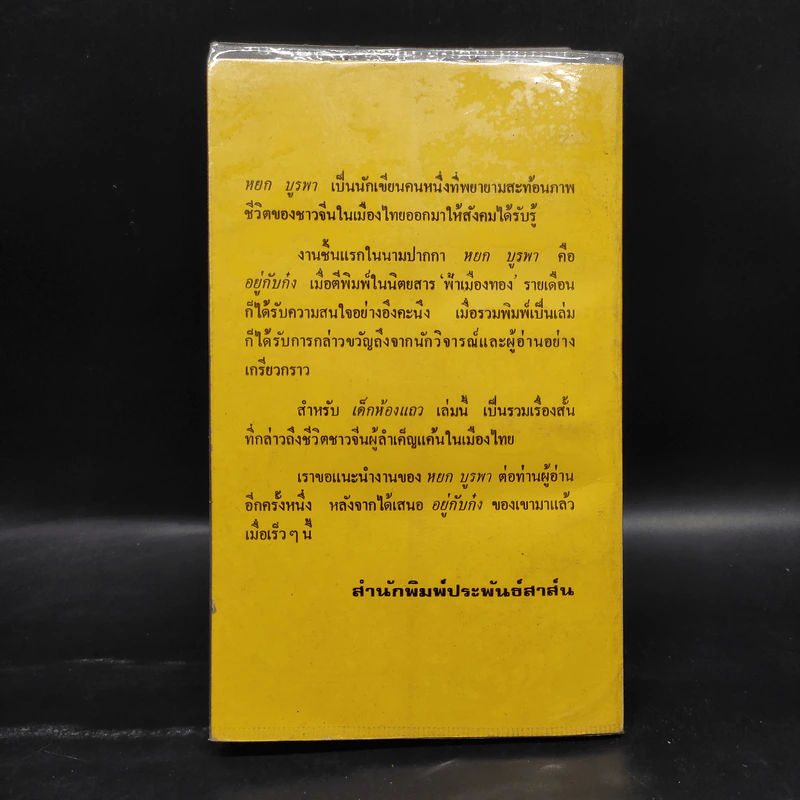 หยก บูรพา เป็นนักเขียนคนหนึ่งที่พยายามสะท้อนภาพ
ชีวิตของชาวจีนในเมืองไทยออกมาให้สังคมได้รับรู้
งานชิ้นแรกในนามปากกา หยก บูรพา คือ
อยู่กับก๋ง เมื่อตีพิมพ์ในนิตยสาร 'ฟ้าเมืองทอง' รายเดือน
ก็ได้รับความสนใจอย่างอึงคะนึง เมื่อรวมพิมพ์เป็นเล่ม
ก็ได้รับการกล่าวขวัญถึงจากนักวิจารณ์และผู้อ่านอย่าง
เกรียวกราว
สำหรับ เด็กห้องแถว เล่มนี้ เป็นรวมเรื่องสั้น
ที่กล่าวถึงชีวิตชาวจีนผู้ลำเค็ญแค้นในเมืองไทย
เราขอแนะนำงานของ หยก บูรพา ต่อท่านผู้อ่าน
อีกครั้งหนึ่ง หลังจากได้เสนอ อยู่กับก๋ง ของเขามาแล้ว
เมื่อเร็ว ๆ นี้
สำนักพิมพ์ประพันธ์สาส์น